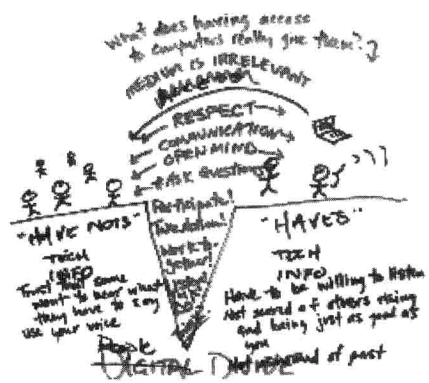 What does having access
to computers really give them?
MEDIUM IS IRRELEVANT
RESPECT
COMMUNICATION
OPEN MIND
ASK QUESTIONS
Participate!
Work to-
gether!
"HAVE NOTS"
TECH
INFO
Trust that some
want to hear what
they have to say
use your voice
"HAVES"
TECH
INFO
Have to be willing to listen
Not scared of others rising
and being just as good as
you
Not ashamed of past
People
DIGITAL DIVIDE